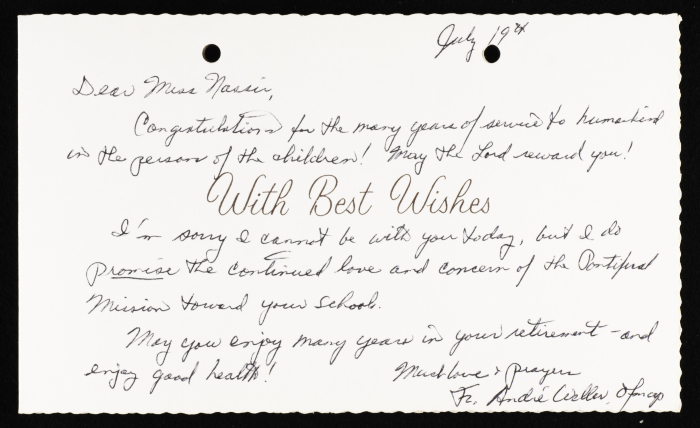 July 19th
Dear Miss Nassir,
Congratulations for the many years of service to humankind
in the person of the children! May the Lord reward you!
With Best Wishes
I'm sorry I cannot be with you today, but I do
promise the continued love and concern of the Pontifical
Mission toward your school.
May you enjoy many years in your retirement - and
enjoy good health!
Much love & prayers
Fr. André Weller, Ofmcap